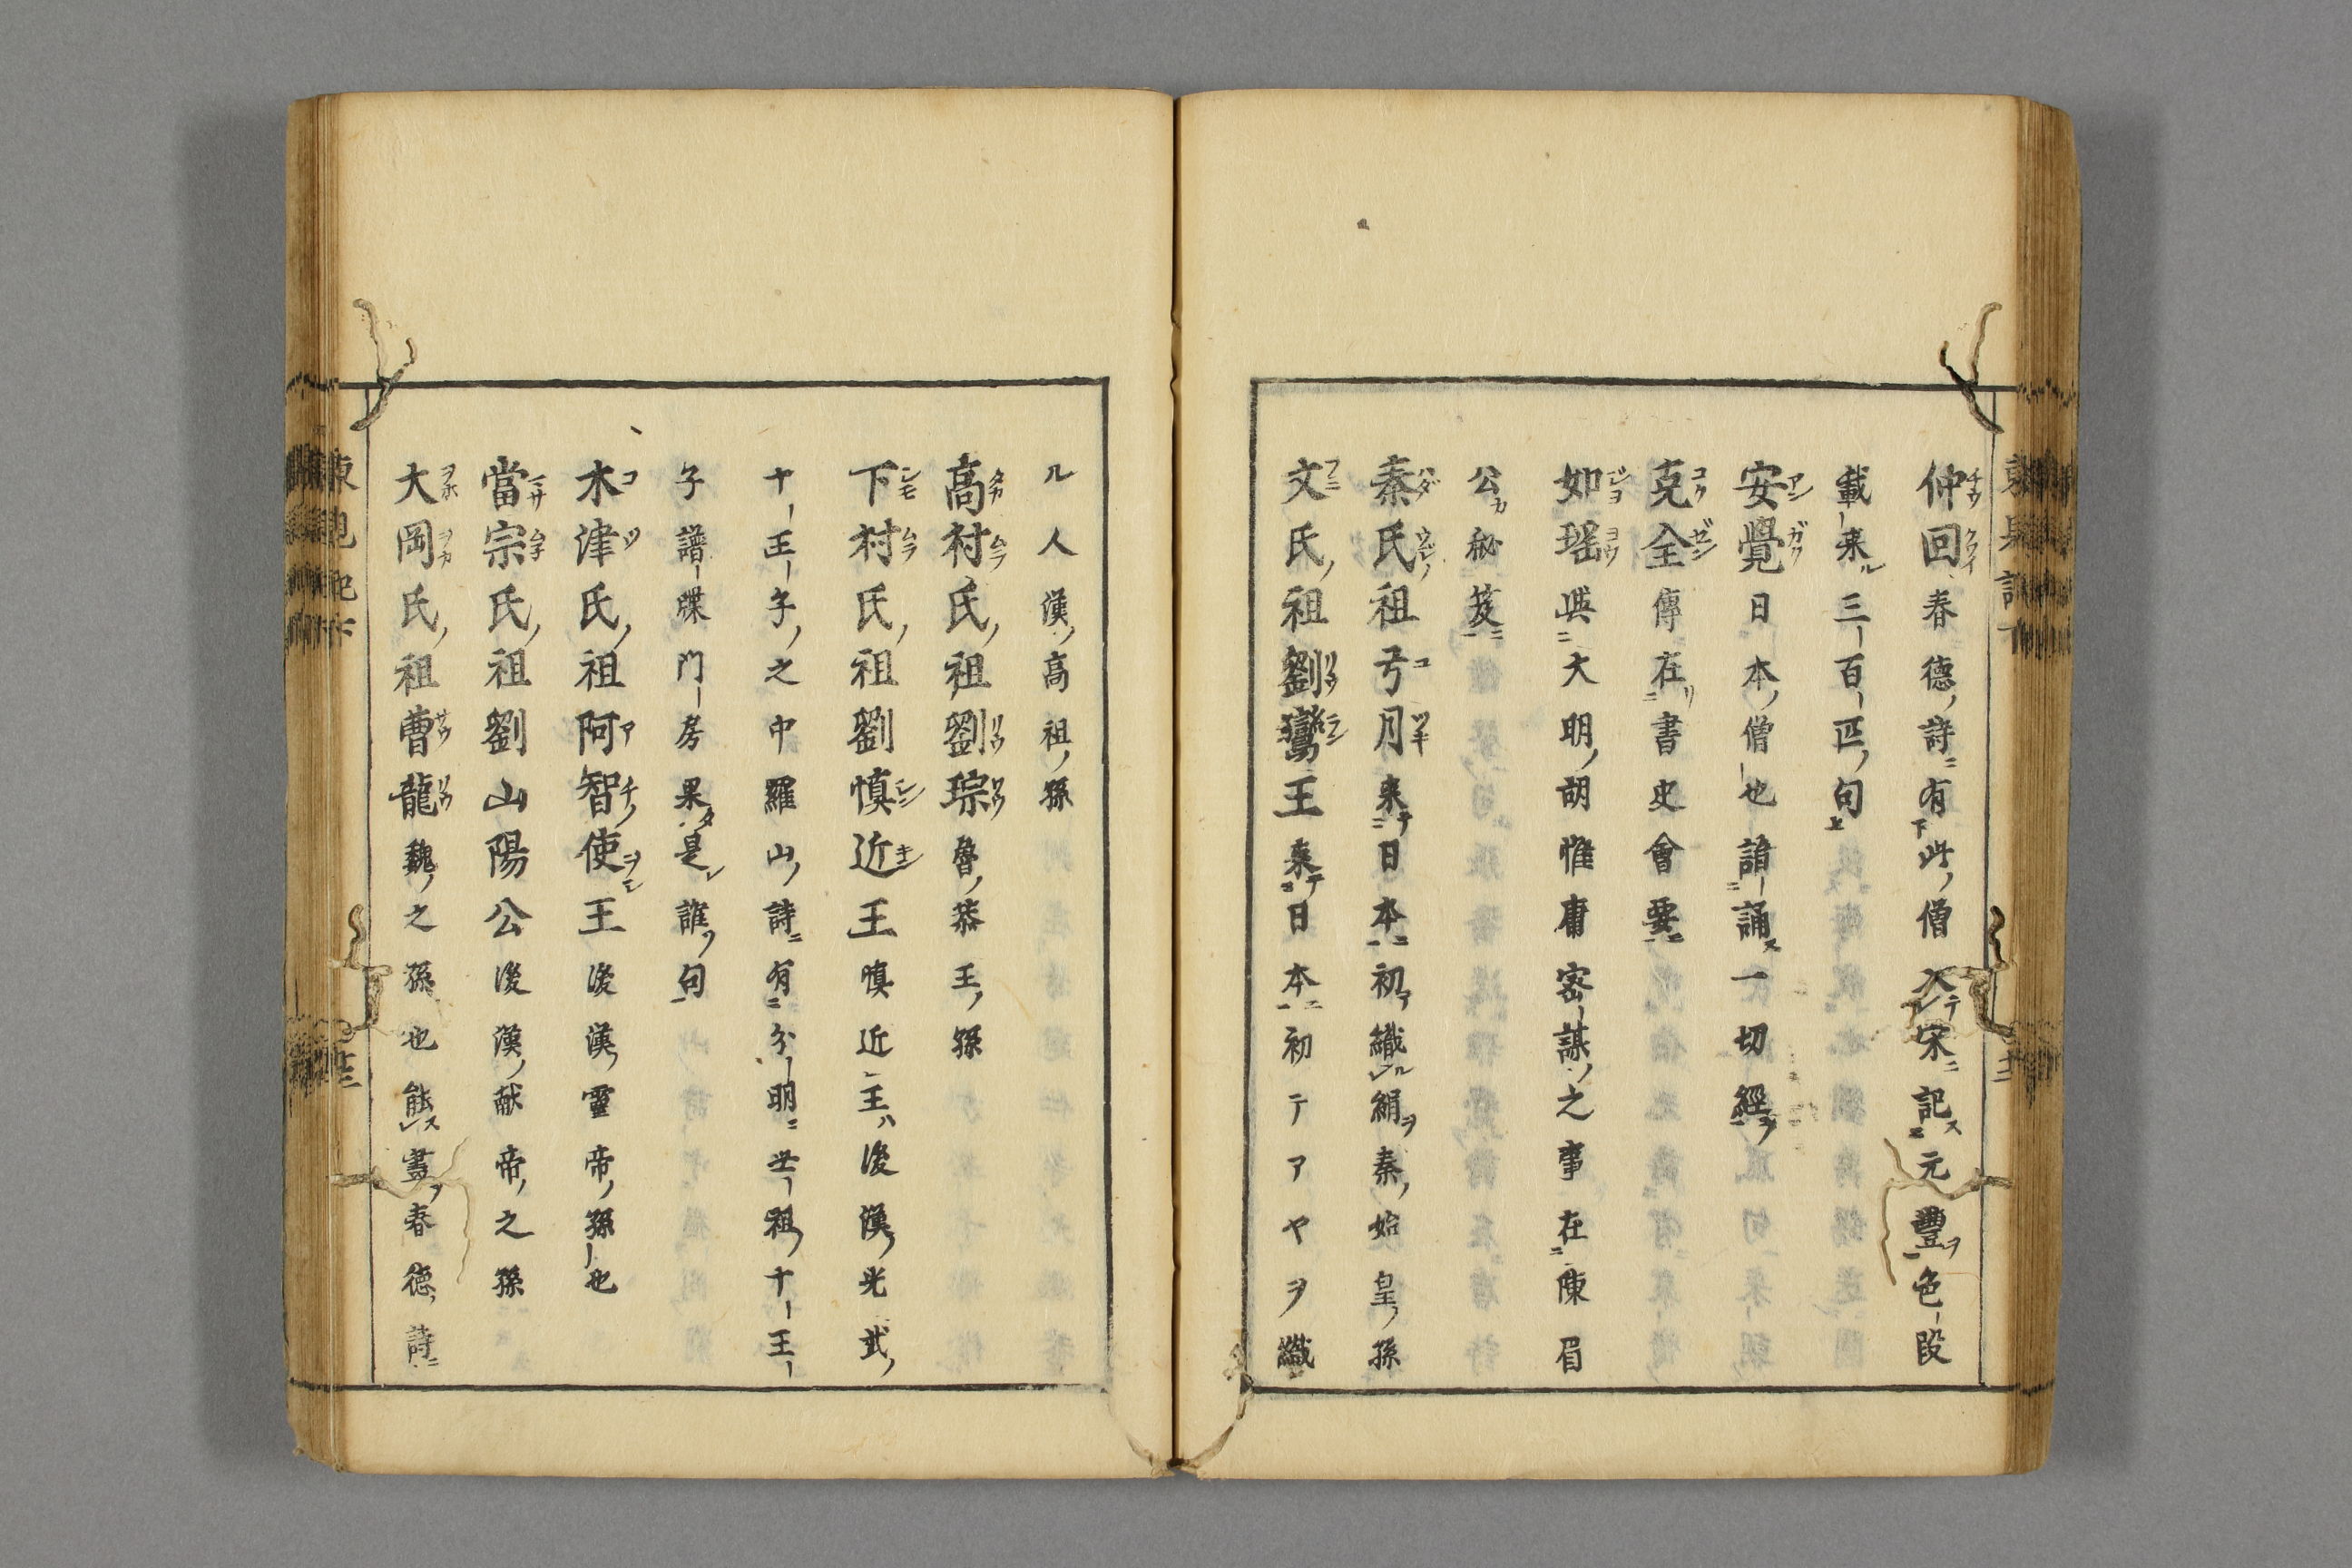 仲回春德ノ詩ニ有此ノ僧入テ宋ニ記ス元豐ヲ色段
載来ル三百匹ノ句
安覺日本ノ僧也諳誦ス一切經ヲ
克全傳在リ書史會要ニ
如瑶與ニ大明ノ胡惟庸密謀ノ之事在ニ陳眉
公カ秘笈ニ
秦氏祖弓月来テ日本ニ初テ織ル絹ヲ秦ノ始皇ノ孫
文氏ノ祖劉鸞王来テ日本ニ初テアヤヲ織
ル人漢ノ高祖ノ孫
高村氏ノ祖劉琮魯ノ恭王ノ孫
下村氏ノ祖劉慎近王慎近王ハ後漢ノ光武ノ
十王子ノ之中羅山ノ詩ニ有ニ分明ニ世祖ノ十王
子譜牒門房果タ是レ誰ノ句
木津氏ノ祖阿智使王後漢ノ靈帝ノ孫也
當宗氏ノ祖劉山陽公後漢ノ献帝ノ之孫
大岡氏ノ祖曹龍魏ノ之孫也能ス畫ヲ春德ノ詩ニ